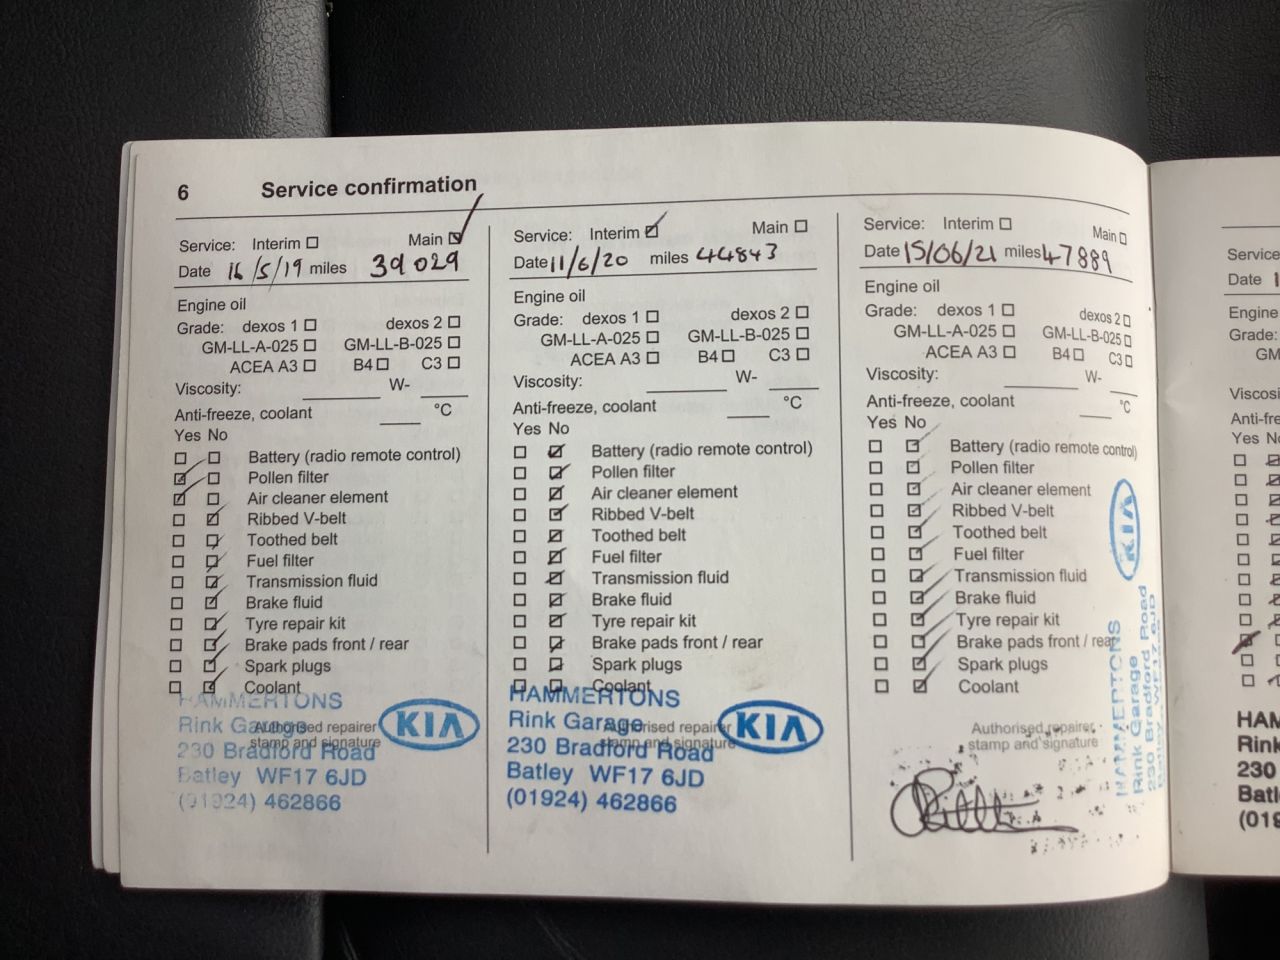 6 Service confirmation
Service: Interim ☐ Main ☑
Date 16/5/19 miles 39029
Engine oil
Grade: dexos 1 ☐ dexos 2 ☐
GM-LL-A-025 ☐ GM-LL-B-025 ☐
ACEA A3 ☐ B4 ☐ C3 ☐
Viscosity: W-
Anti-freeze, coolant °C
Yes No
☐ ☐ Battery (radio remote control)
☑ ☐ Pollen filter
☑ ☐ Air cleaner element
☐ ☑ Ribbed V-belt
☐ ☑ Toothed belt
☐ ☑ Fuel filter
☐ ☑ Transmission fluid
☐ ☑ Brake fluid
☐ ☑ Tyre repair kit
☐ ☑ Brake pads front / rear
☐ ☑ Spark plugs
☐ ☑ Coolant
HAMMERTONS
Rink Garage
230 Bradford Road
Batley WF17 6JD
(01924) 462866
KIA
Authorised repairer
stamp and signature
Service: Interim ☑ Main ☐
Date 11/6/20 miles 44843
Engine oil
Grade: dexos 1 ☐ dexos 2 ☐
GM-LL-A-025 ☐ GM-LL-B-025 ☐
ACEA A3 ☐ B4 ☐ C3 ☐
Viscosity: W-
Anti-freeze, coolant °C
Yes No
☐ ☑ Battery (radio remote control)
☐ ☑ Pollen filter
☐ ☑ Air cleaner element
☐ ☑ Ribbed V-belt
☐ ☑ Toothed belt
☐ ☑ Fuel filter
☐ ☑ Transmission fluid
☐ ☑ Brake fluid
☐ ☑ Tyre repair kit
☐ ☑ Brake pads front / rear
☐ ☑ Spark plugs
☐ ☑ Coolant
HAMMERTONS
Rink Garage
230 Bradford Road
Batley WF17 6JD
(01924) 462866
KIA
Authorised repairer
stamp and signature
Service: Interim ☐ Main ☐
Date 15/06/21 miles 47889
Engine oil
Grade: dexos 1 ☐ dexos 2 ☐
GM-LL-A-025 ☐ GM-LL-B-025 ☐
ACEA A3 ☐ B4 ☐ C3 ☐
Viscosity: W-
Anti-freeze, coolant °C
Yes No
☐ ☑ Battery (radio remote control)
☐ ☑ Pollen filter
☐ ☑ Air cleaner element
☐ ☑ Ribbed V-belt
☐ ☑ Toothed belt
☐ ☑ Fuel filter
☐ ☑ Transmission fluid
☐ ☑ Brake fluid
☐ ☑ Tyre repair kit
☐ ☑ Brake pads front / rear
☐ ☑ Spark plugs
☐ ☑ Coolant
Authorised repairer
stamp and signature
KIA
HAMMERTONS
Rink Garage
230 Bradford Road
Batley WF17 6JD
Service
Date 1
Engine
Grade:
GM
Viscosi
Anti-fre
Yes No
HAM
Rink
230
Batl
(019